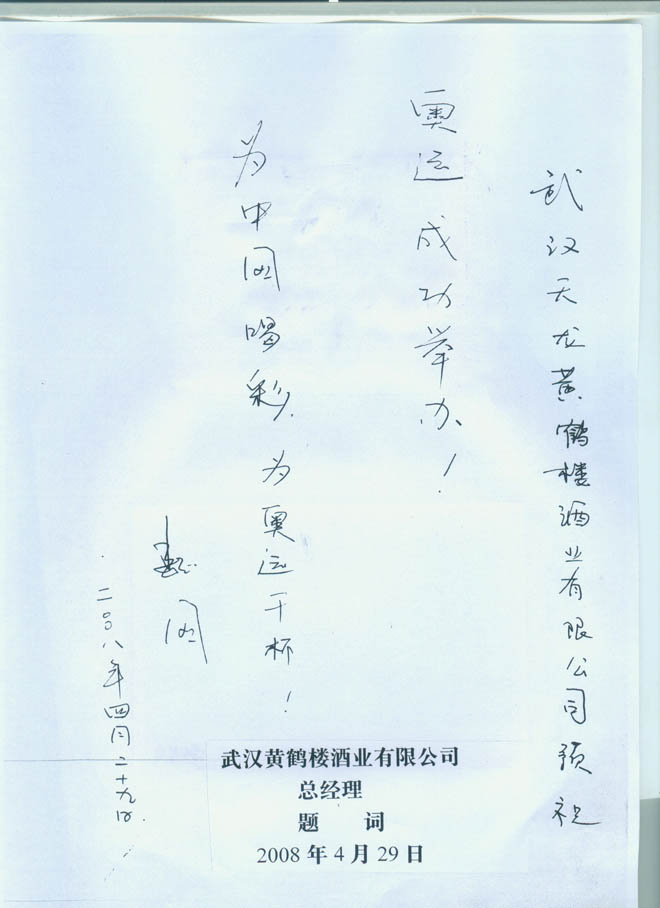 武汉天龙黄鹤楼酒业有限公司预祝
奥运成功举办！
为中国喝彩，为奥运干杯！
国
二〇〇八年四月二十九日.
武汉黄鹤楼酒业有限公司
总经理
题 词
2008年4月29日